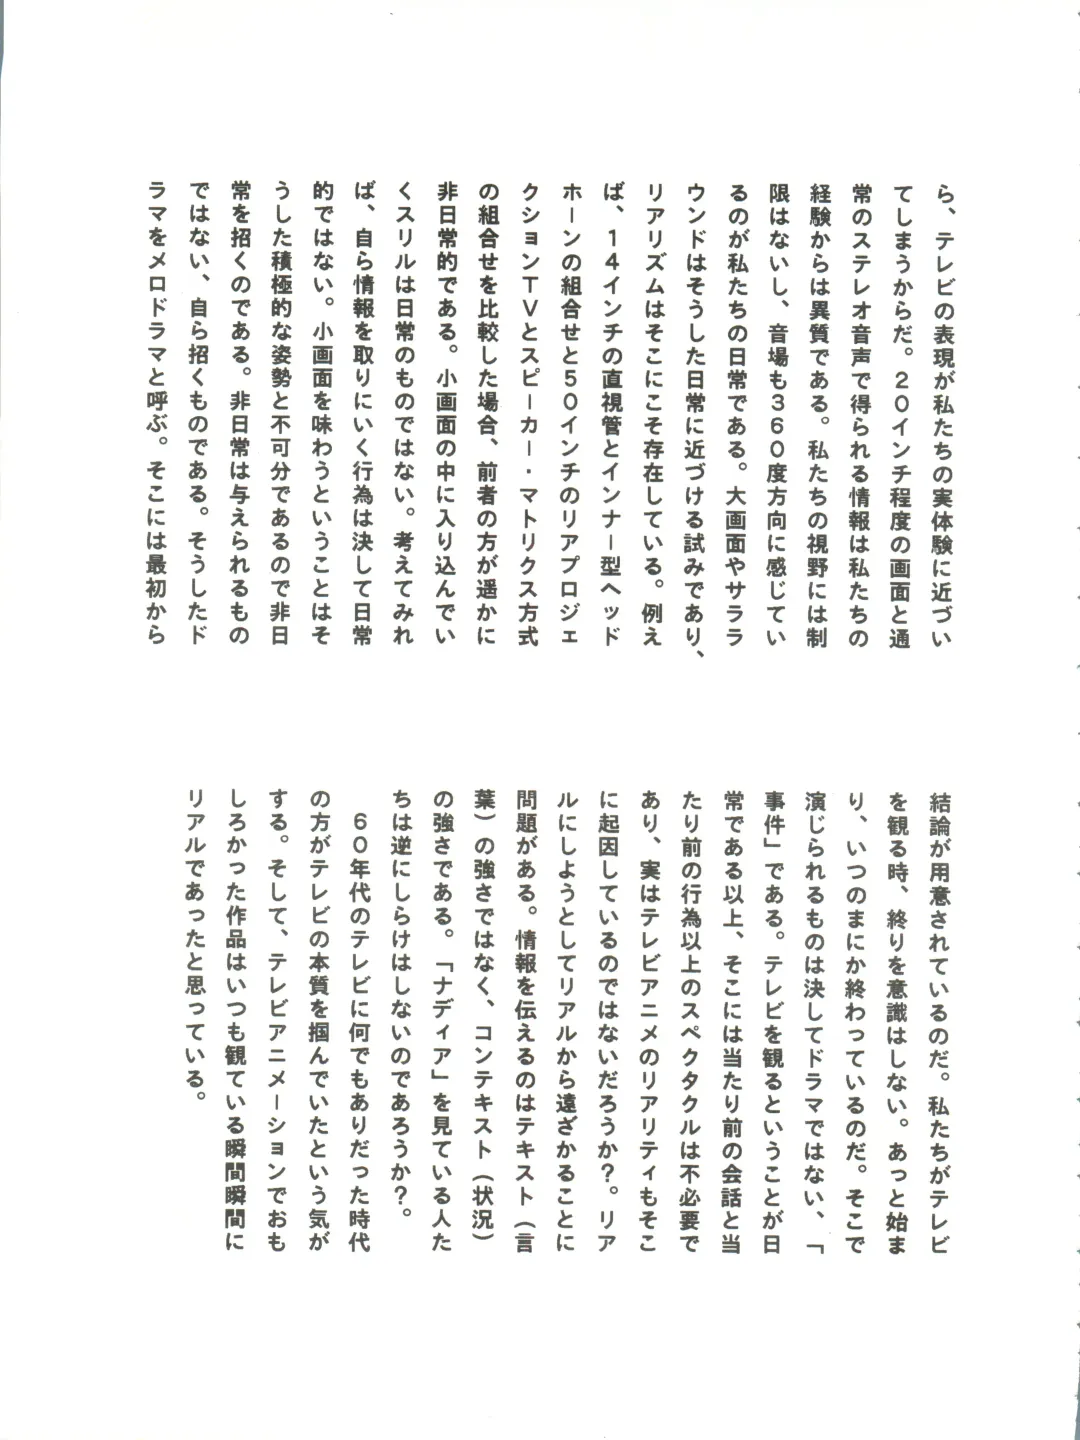 ら、テレビの表現が私たちの実体験に近づい
てしまうからだ。２０インチ程度の画面と通
常のステレオ音声で得られる情報は私たちの
経験からは異質である。私たちの視野には制
限はないし、音場も３６０度方向に感じてい
るのが私たちの日常である。大画面やサララ
ウンドはそうした日常に近づける試みであり、
リアリズムはそこにこそ存在している。例え
ば、１４インチの直視管とインナー型ヘッド
ホーンの組合せと５０インチのリアプロジェ
クションＴＶとスピーカー・マトリクス方式
の組合せを比較した場合、前者の方が遥かに
非日常的である。小画面の中に入り込んでい
くスリルは日常のものではない。考えてみれ
ば、自ら情報を取りにいく行為は決して日常
的ではない。小画面を味わうということはそ
うした積極的な姿勢と不可分であるので非日
常を招くのである。非日常は与えられるもの
ではない、自ら招くものである。そうしたド
ラマをメロドラマと呼ぶ。そこには最初から
結論が用意されているのだ。私たちがテレビ
を観る時、終りを意識はしない。あっと始ま
り、いつのまにか終わっているのだ。そこで
演じられるものは決してドラマではない、「
事件」である。テレビを観るということが日
常である以上、そこには当たり前の会話と当
たり前の行為以上のスペクタクルは不必要で
あり、実はテレビアニメのリアリティもそこ
に起因しているのではないだろうか？。リア
ルにしようとしてリアルから遠ざかることに
問題がある。情報を伝えるのはテキスト（言
葉）の強さではなく、コンテキスト（状況）
の強さである。「ナディア」を見ている人た
ちは逆にしらけはしないのであろうか？。
　６０年代のテレビに何でもありだった時代
の方がテレビの本質を掴んでいたという気が
する。そして、テレビアニメーションでおも
しろかった作品はいつも観ている瞬間瞬間に
リアルであったと思っている。